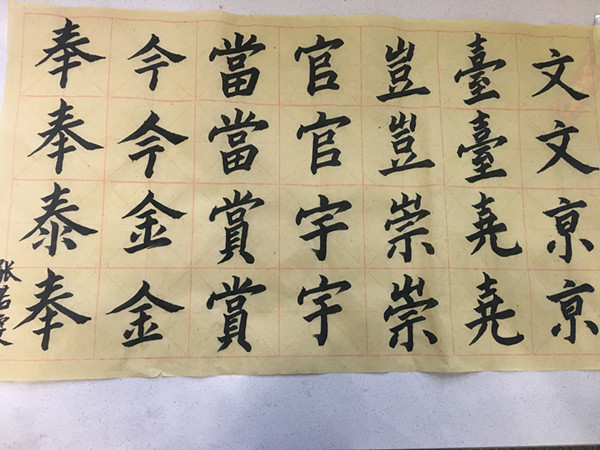 文文京京
臺臺尭尭
豈豈崇崇
官官宇宇
當當賞賞
今今金金
奉奉泰奉
张